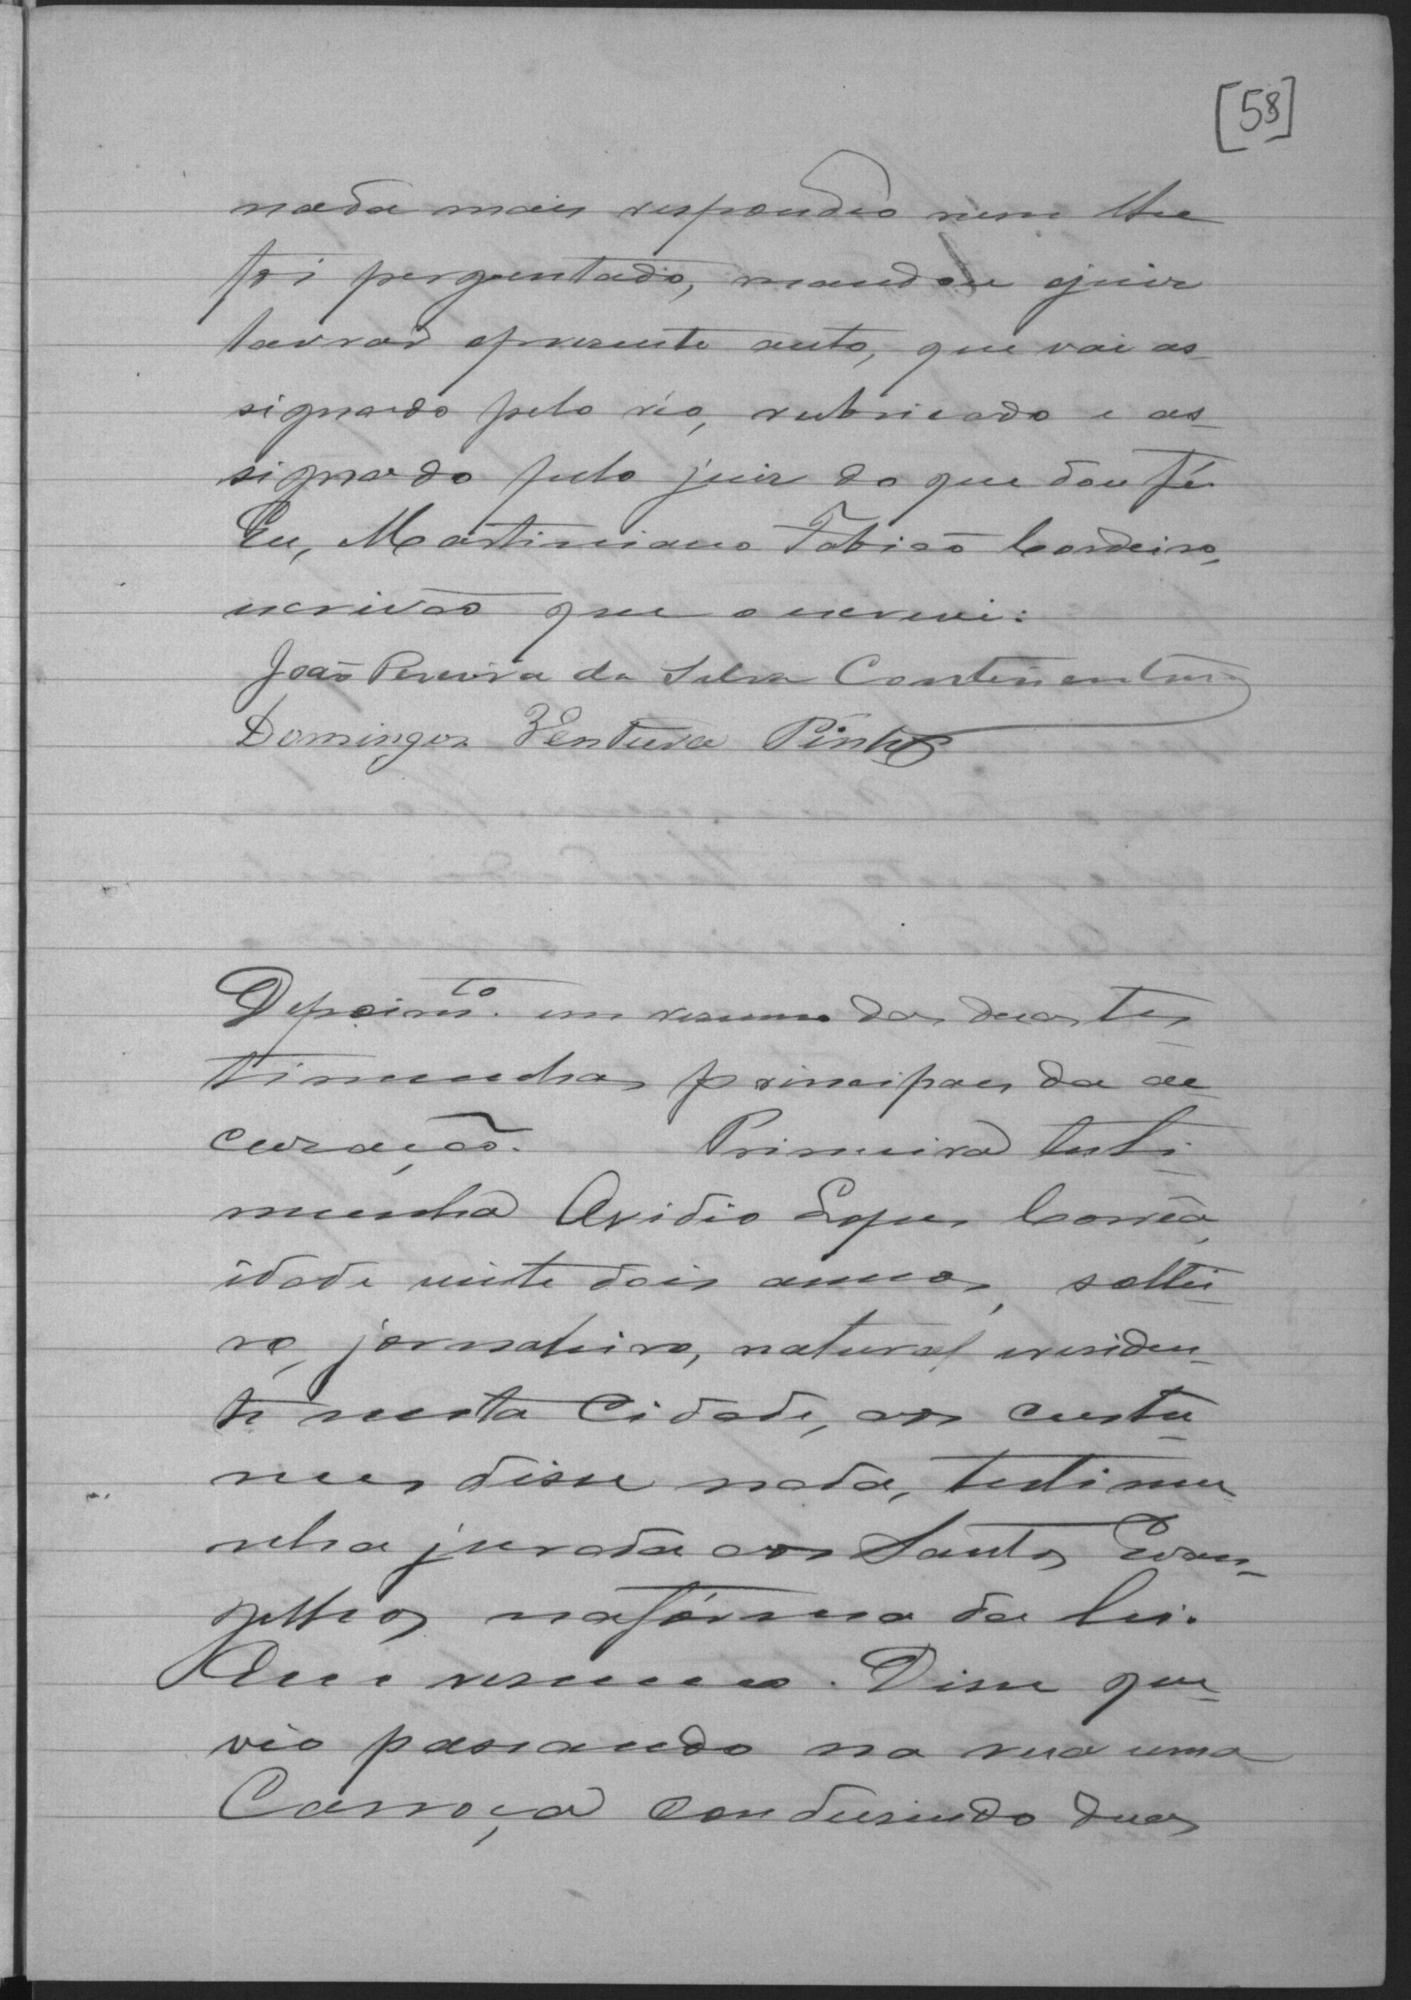 [58]
nada mais respondeo nem lhe
foi perguntado, mandou ojuiz
lavrar opresente auto, que vai as-
signado pelo réo, rubricado e as-
signado pelo juiz do que dou fé.
Eu, Martiniano Fabião Cordeiro,
escrivão que o escrevi:
João Pereira da Silva Continentino
Domingos Ventura Pinto
Depoimto. em resumo das duas tes-
timunhas principaes da ac-
cusação. Primeira testi-
munha Ovidio Lopes Corrêa,
idade vinte dois annos, soltei-
ro, jornaleiro, natural e residen-
te nesta Cidade, aos custu-
mes disse nada, testimu-
nha jurada aos Santos Evan-
gelhos nafórma da lei.
resumo. Disse que
vio passando na rua uma
Carroça condusindo duas